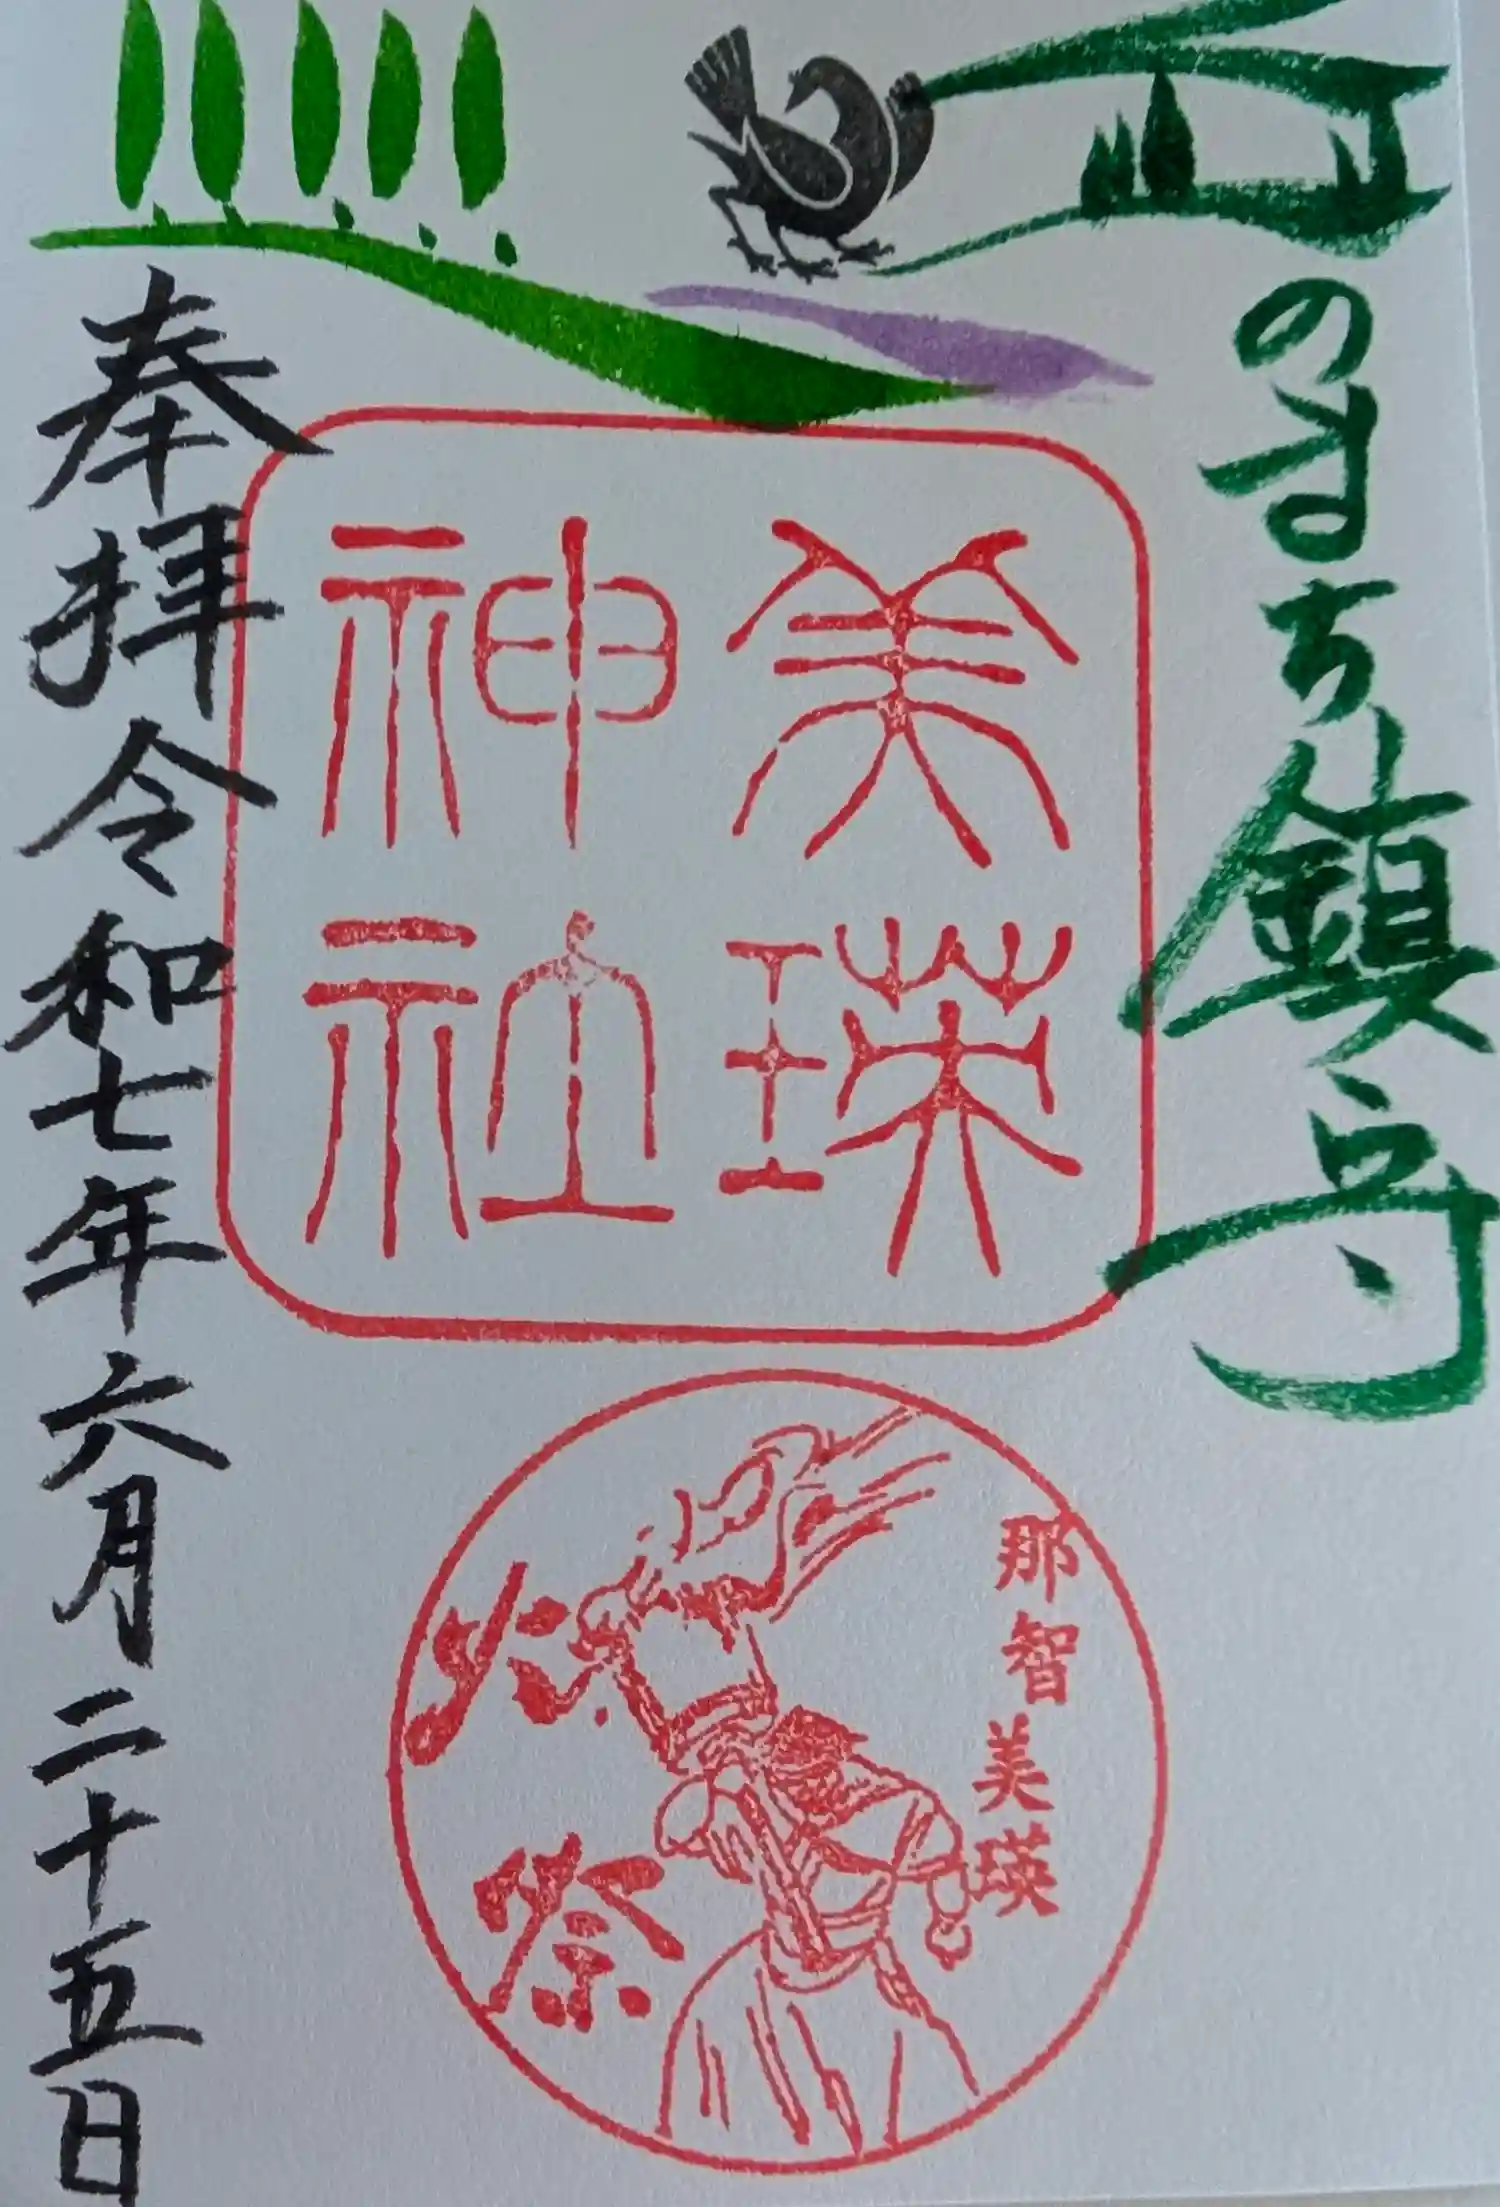 丘のまち鎮守
美瑛
神社
那智美瑛
火祭
奉拝令和七年六月二十五日